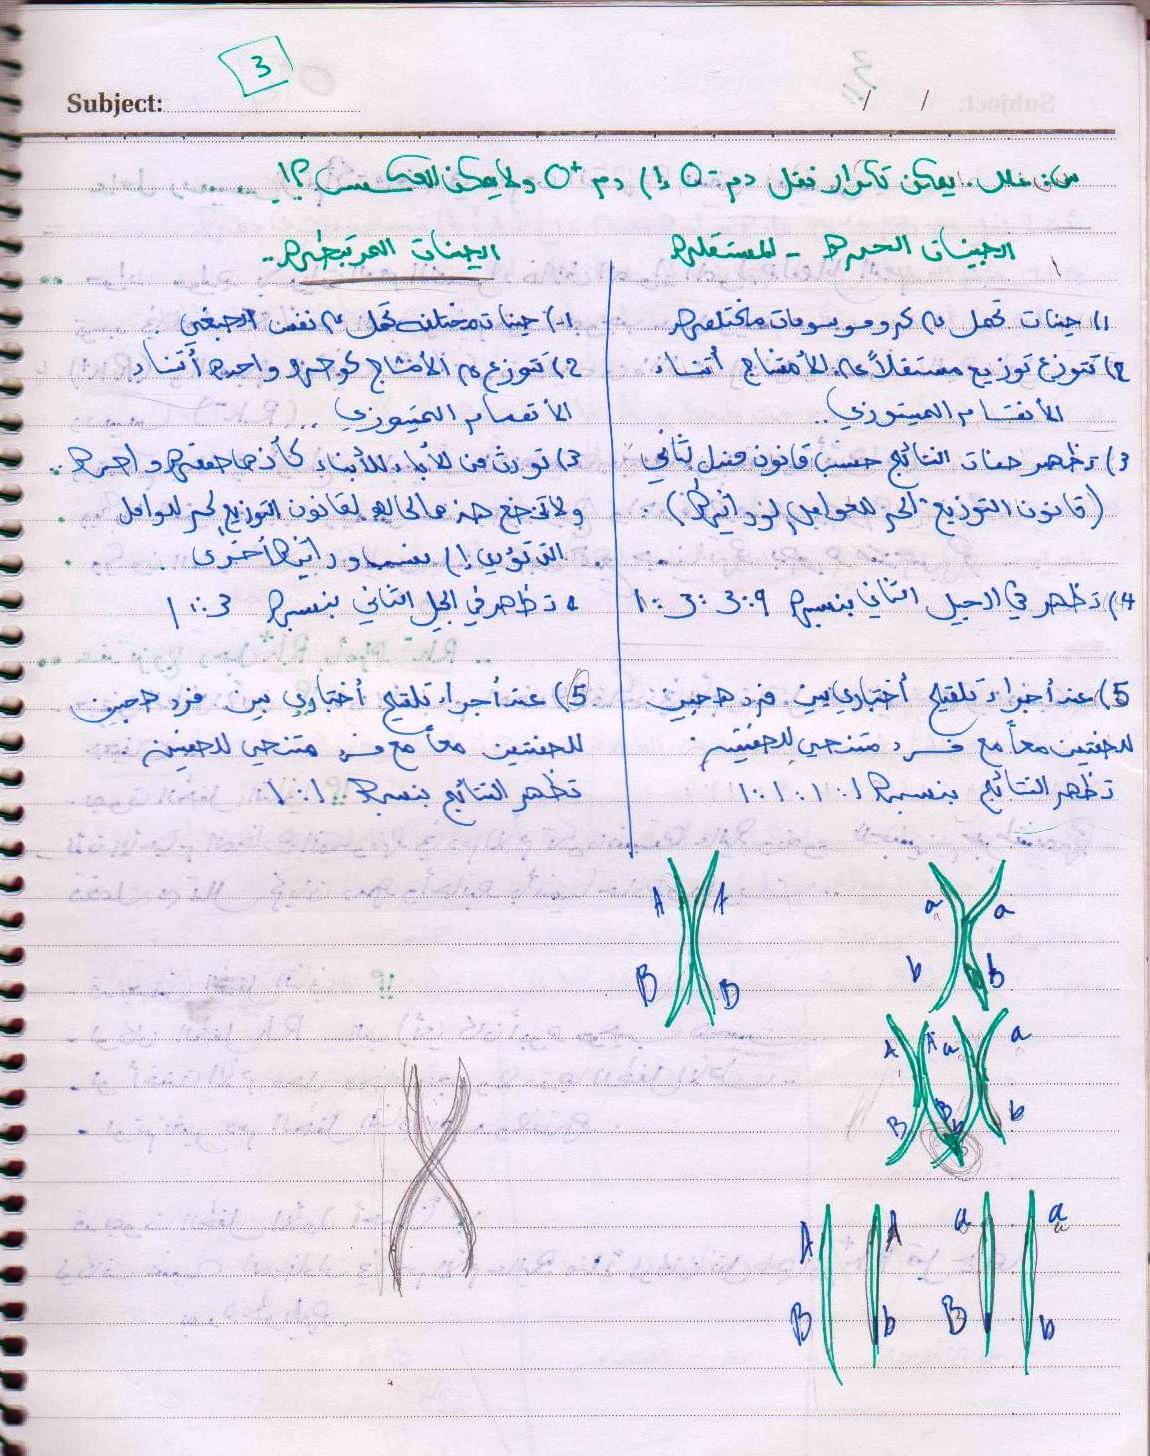 3
Subject: / /
س: علل. يمكن تكرار نقل دم O- إلى دم O+ ولا يمكن العكس؟!
الجينات الحره - المستقله
1) جينات تحمل على كروموسومات مختلفه
2) تتوزع توزيع مستقلاً على الأمشاج أثناء
الأنقسام الميتوزي..
3) تظهر صفات النتائج حسب قانون مندل الثاني
(قانون التوزيع الحر للعوامل الوراثيه)
4) تظهر في الجيل الثاني بنسبه 9:3:3:1
5) عند أجراء تلقيح أختباري بين فرد هجين
للصفتين معاً مع فرد متنحي للصفتين
تظهر النتائج بنسبه 1:1:1:1
الجينات المرتبطه..
1-) جينات مختلفه تحمل على نفس الصبغي.
2) تتوزع على الأمشاج كوحده واحده أثناء
الأنقسام الميتوزي..
3) تورث من الأباء للأبناء كأنها صفه واحده..
ولا تخضع هذه الحاله لقانون التوزيع الحر للعوامل
التي تؤدي إلى وراثيه أخرى.
4 تظهر في الجيل الثاني بنسبه 3:1
5) عند أجراء تلقيح أختباري بين فرد هجين
للصفتين معاً مع فرد متنحي للصفتين
تظهر النتائج بنسبه 1:1
A A a a
B B b b
A A a a
B B b b
A A a a
B b B b